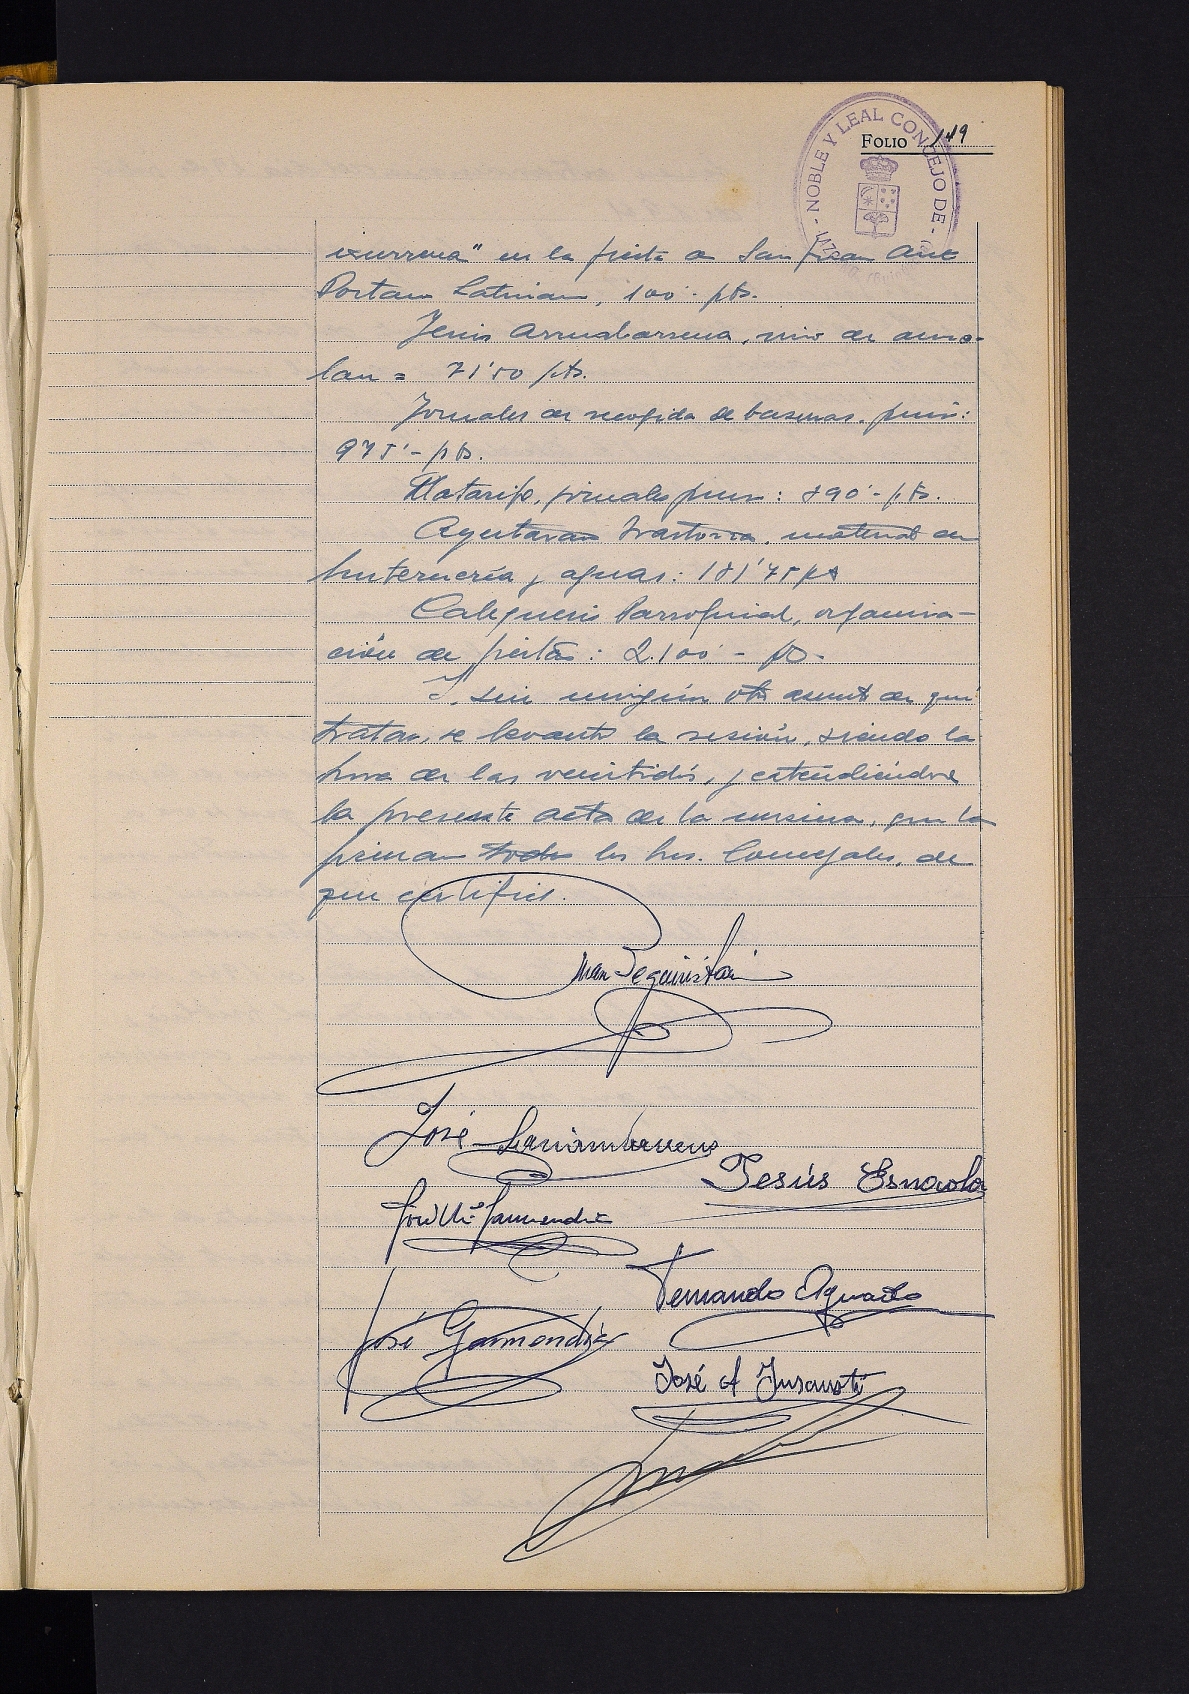 FOLIO 149
- NOBLE Y LEAL CONCEJO DE -
en la fiesta de San Juan Ante
Portam Latinam, 100'- pts.
Jesús Arruabarrena, de
71'50 pts.
Jornales de recogida de basuras, junio:
975'- pts.
Matarife, jornales junio: 890'- pts.
material de
y aguas: 181'75 pts
Parroquial, organiza-
ción de fiestas: 2.100'- pts.
Y, sin ningún otro asunto de que
tratar, se levantó la sesión, siendo la
hora de las veintidós, y extendiéndose
la presente acta de la misma, que la
firman todos los Sres. Concejales, de
que certifico.
Juan Beguiristain
José
Jesús Esnaola
José Mª Garmendia
Fernando Aguado
José Garmendia
José A